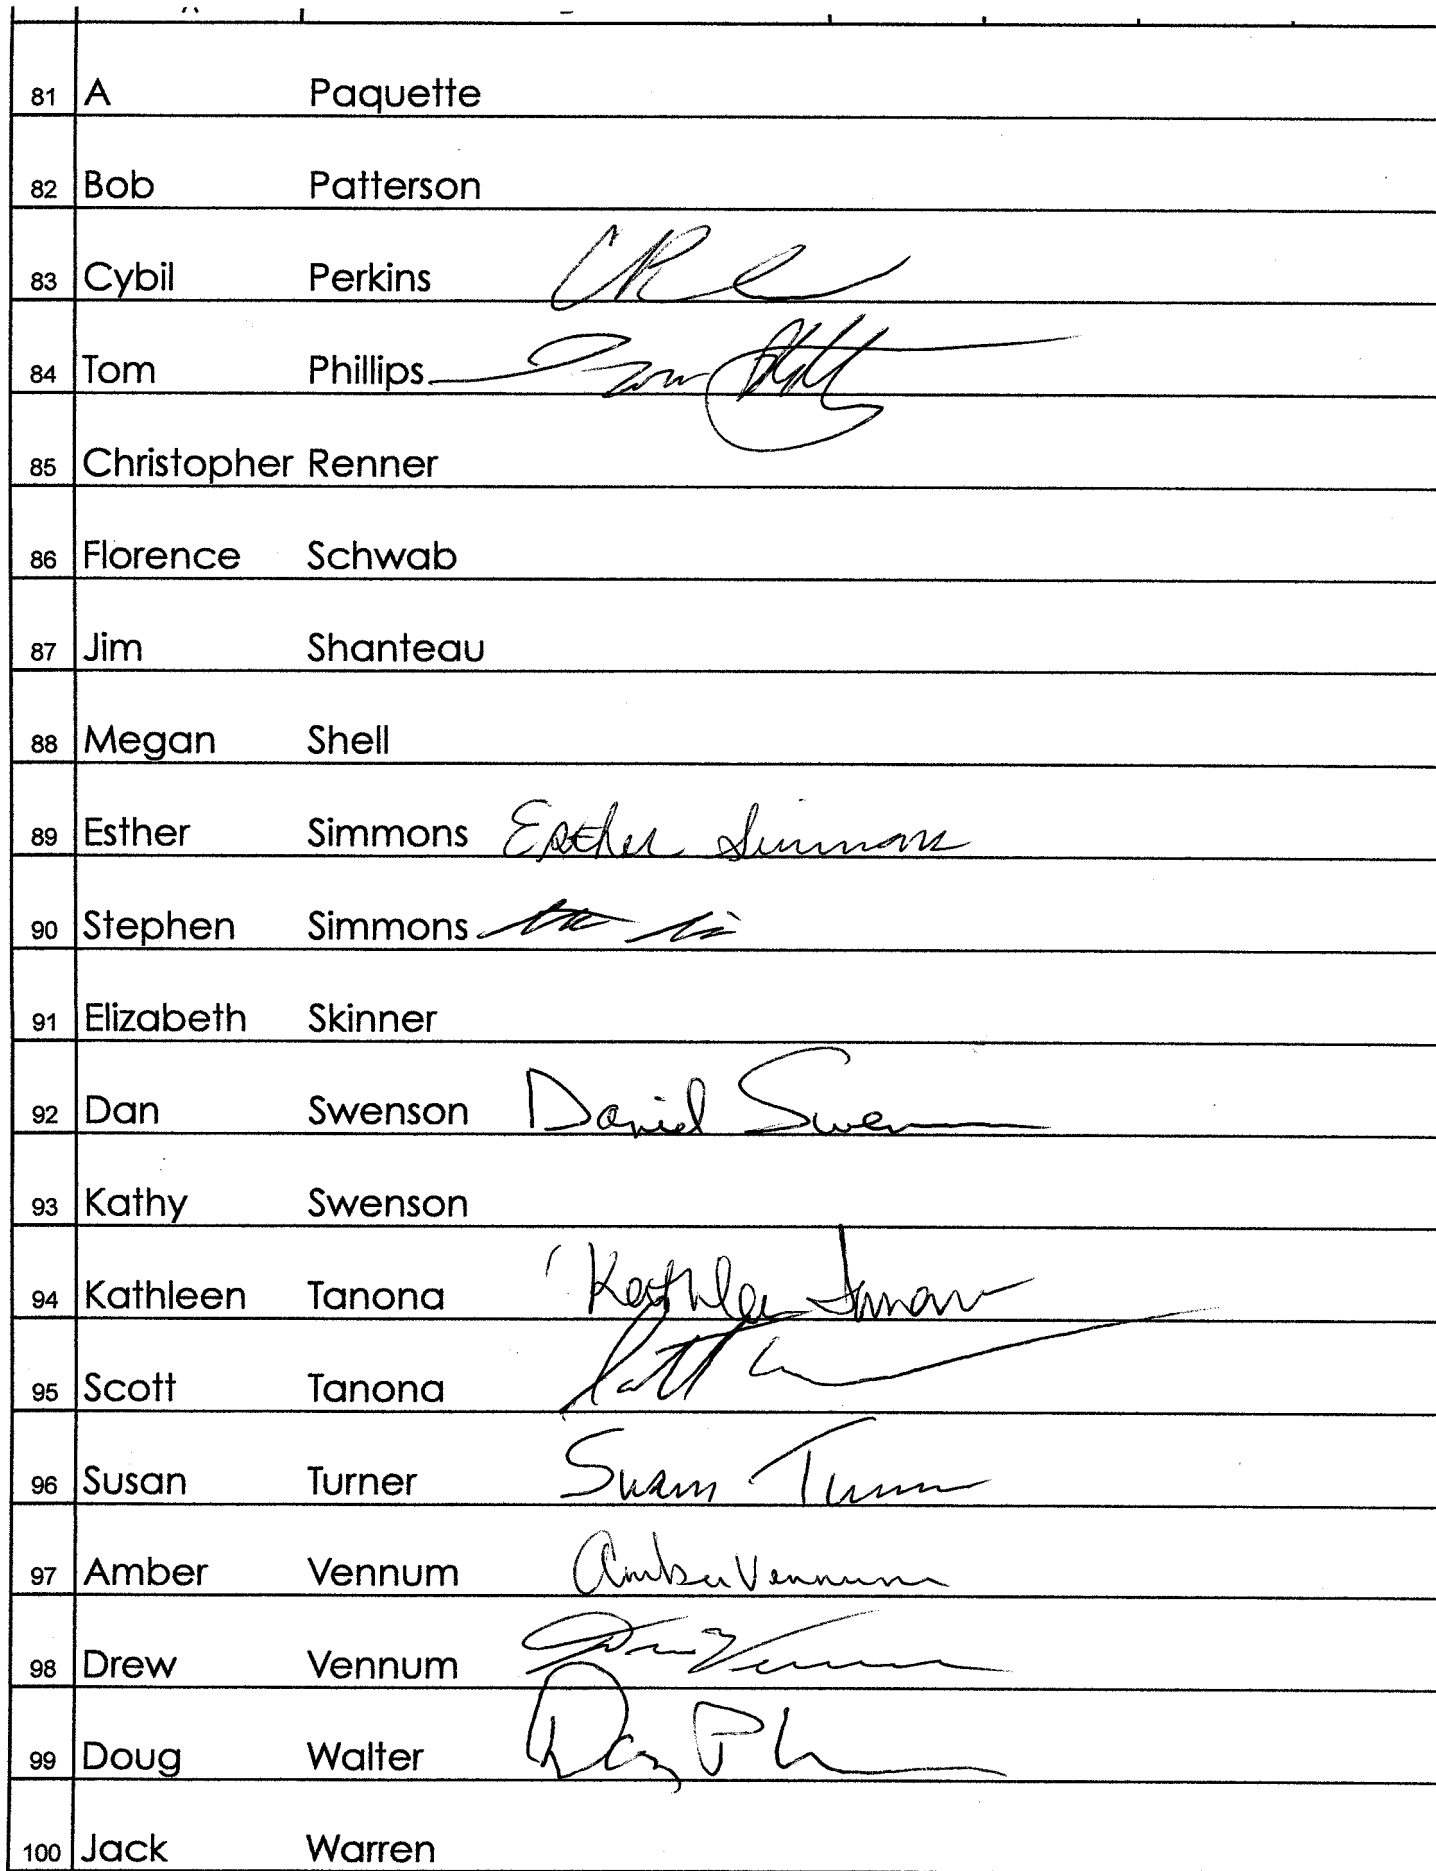 81 A Paquette
82 Bob Patterson
83 Cybil Perkins
84 Tom Phillips Tom
85 Christopher Renner
86 Florence Schwab
87 Jim Shanteau
88 Megan Shell
89 Esther Simmons Esther Simmons
90 Stephen Simmons
91 Elizabeth Skinner
92 Dan Swenson Daniel Swenson
93 Kathy Swenson
94 Kathleen Tanona Kathleen Tanona
95 Scott Tanona Scott
96 Susan Turner Susan Turner
97 Amber Vennum Amber Vennum
98 Drew Vennum Drew Vennum
99 Doug Walter Doug
100 Jack Warren